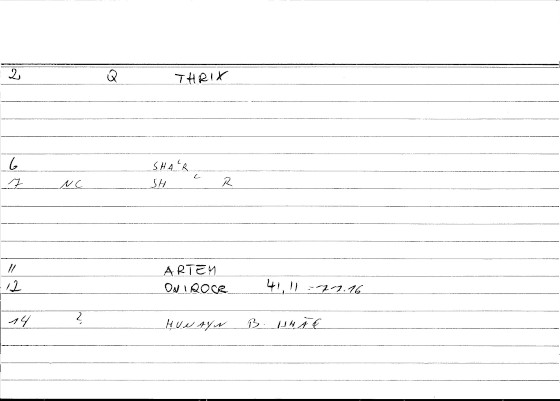 2 Q THRIX
6 SHAʿR
7 NC SH ʿ R
11 ARTEM
12 ONIROCR 41,11 = 77.16
14 ? HUNAYN B. ISHĀQ